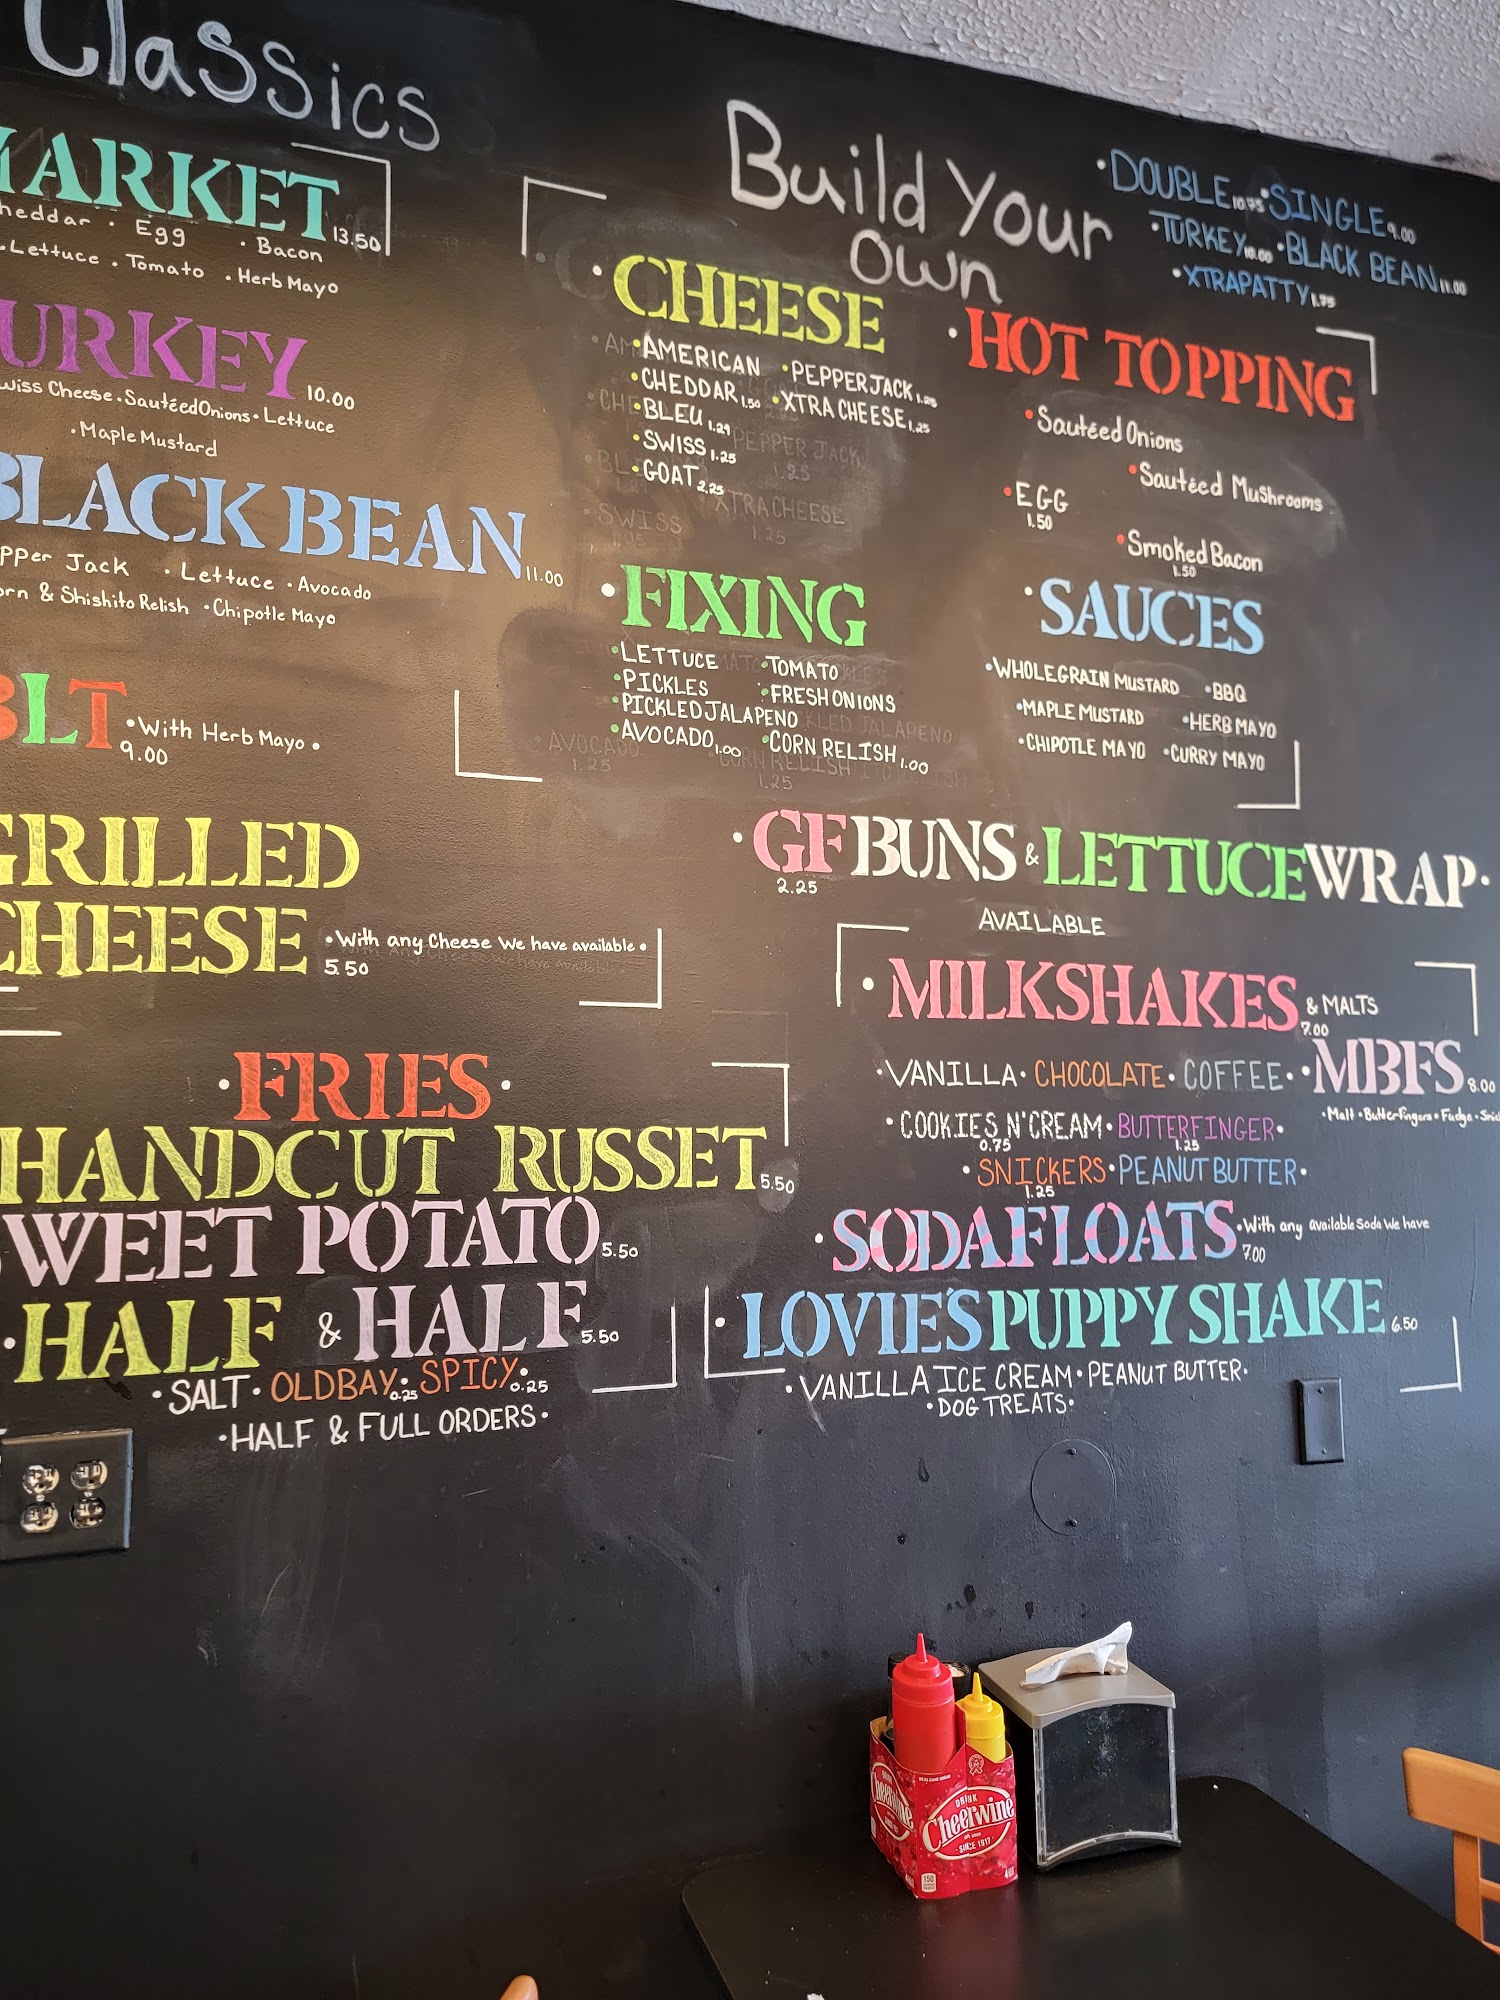 Classics
MARKET 13.50
heddar · Egg · Bacon
· Lettuce · Tomato · Herb Mayo
URKEY 10.00
wiss Cheese · Sautéed Onions · Lettuce
· Maple Mustard
BLACK BEAN 11.00
pper Jack · Lettuce · Avocado
orn & Shishito Relish · Chipotle Mayo
BLT • With Herb Mayo •
9.00
GRILLED
CHEESE • With any Cheese We have available •
5.50
· FRIES ·
HANDCUT RUSSET 5.50
SWEET POTATO 5.50
· HALF & HALF 5.50
· SALT · OLDBAY 0.25 · SPICY · 0.25
· HALF & FULL ORDERS ·
Build Your
Own
· DOUBLE 10.75 · SINGLE 9.00
· TURKEY 10.00 · BLACK BEAN 11.00
· XTRA PATTY 1.75
· CHEESE
• AMERICAN • PEPPER JACK 1.25
• CHEDDAR 1.50 • XTRA CHEESE 1.25
• BLEU
• SWISS 1.25
• GOAT 2.25
PEPPER JACK
1.25
SWISS
XTRA CHEESE
1.25
· HOT TOPPING
• Sautéed Onions
• Sautéed Mushrooms
• EGG
1.50
• Smoked Bacon
1.50
· FIXING
• LETTUCE • TOMATO
• PICKLES • FRESH ONIONS
• PICKLED JALAPENO
• AVOCADO 1.00 • CORN RELISH 1.00
AVOCADO
1.25
CORN RELISH
1.25
· SAUCES
• WHOLEGRAIN MUSTARD • BBQ
• MAPLE MUSTARD • HERB MAYO
• CHIPOTLE MAYO • CURRY MAYO
· GF BUNS & LETTUCE WRAP ·
2.25
AVAILABLE
· MILKSHAKES & MALTS
7.00
· VANILLA · CHOCOLATE · COFFEE · · MBFS 8.00
· Malt · Butterfingers · Fudge ·
· COOKIES N' CREAM · BUTTERFINGER ·
0.75 1.25
· SNICKERS · PEANUT BUTTER ·
1.25
· SODA FLOATS · With any available Soda We have
7.00
· LOVIE'S PUPPY SHAKE 6.50
· VANILLA ICE CREAM · PEANUT BUTTER ·
· DOG TREATS ·
DRINK
Cheerwine
· SINCE 1917 ·